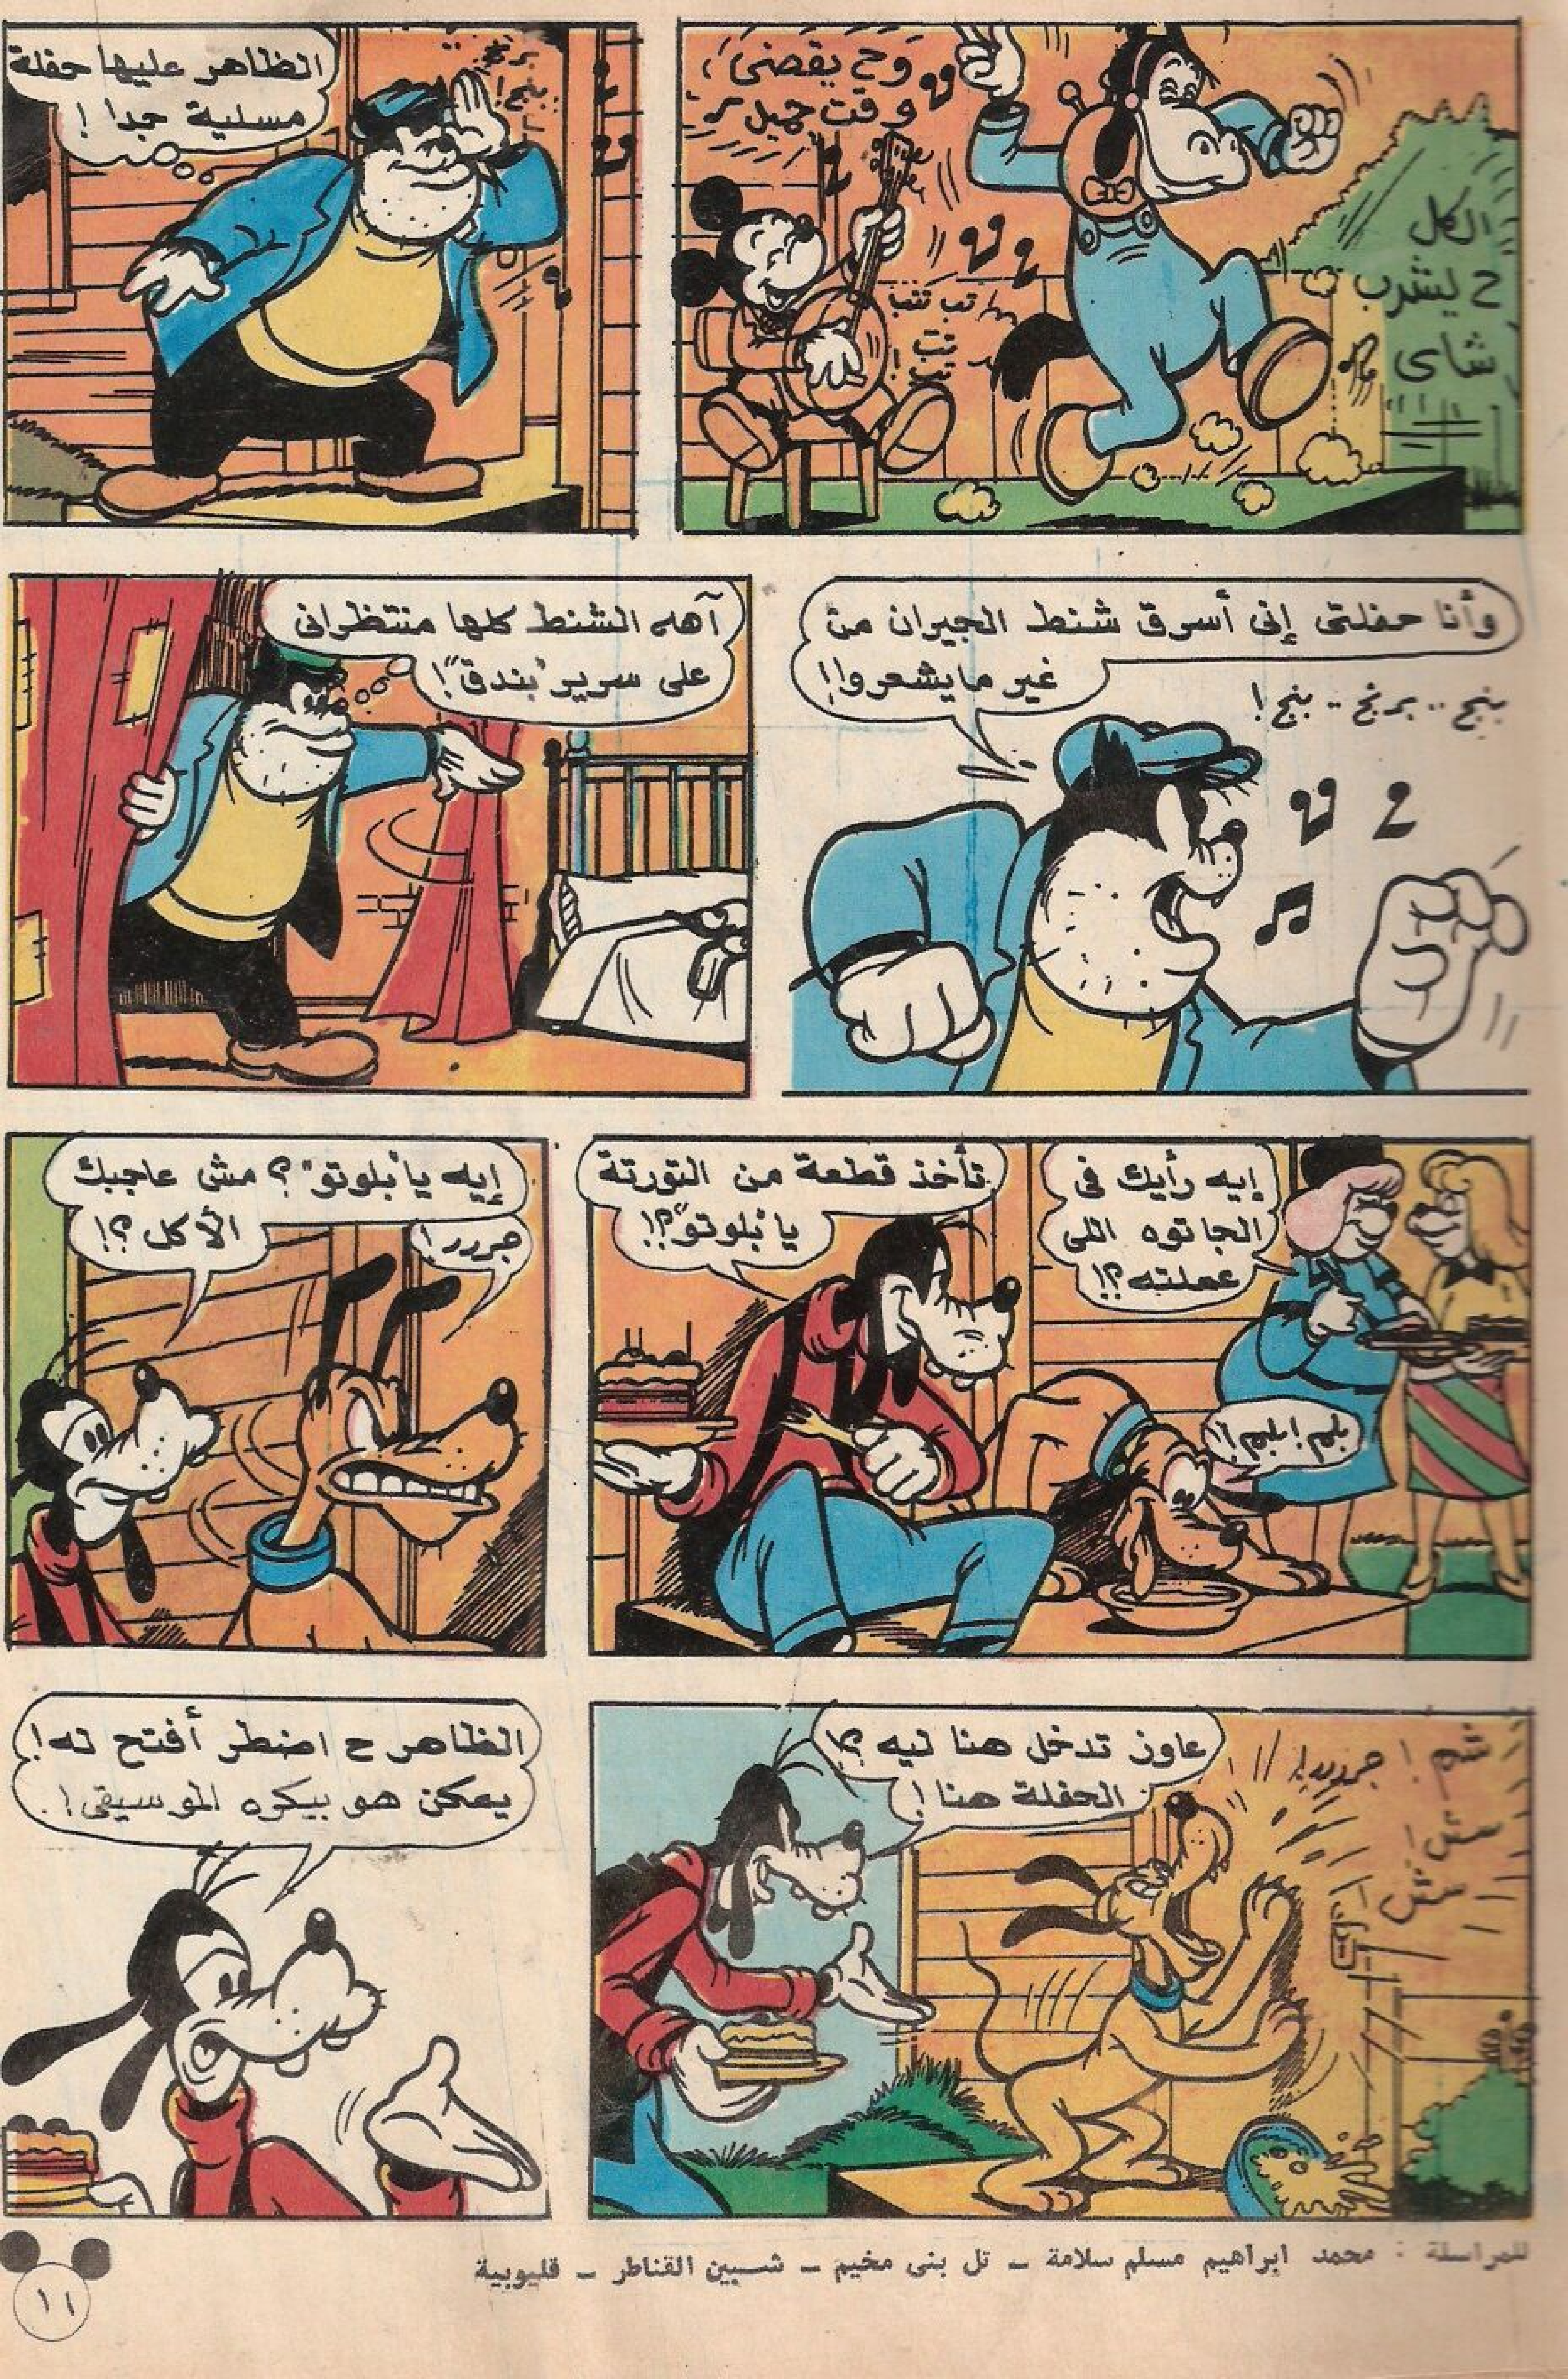 الكل
ح يشرب
شاى
وح يقضى
وقت جميل
تب تتب
تب
تب !
برنج ..
بنج !
الظاهر عليها حفلة
مسلية جدا !
وأنا حفلتى إنى أسرق شنط الجيران من
غير ما يشعروا !
بنج .. برنج .. بنج !
آهه الشنط كلها منتظرانى
على سرير "بندق" !
إيه رأيك فى
الجاتوه اللى
عملته ؟!
تأخذ قطعة من التورتة
يا "بلوتو" ؟!
بلم ! بلم !!
إيه يا "بلوتو" ؟ مش عاجبك
الأكل ؟!
جررر !
شم ! جررر !
عاوز تدخل هنا ليه ؟!
الحفلة هنا !
الظاهر ح اضطر أفتح له !
يمكن هو بيكره الموسيقى !
للمراسلة : محمد ابراهيم مسلم سلامة ـ تل بنى مخيم ـ شبين القناطر ـ قليوبية
١١